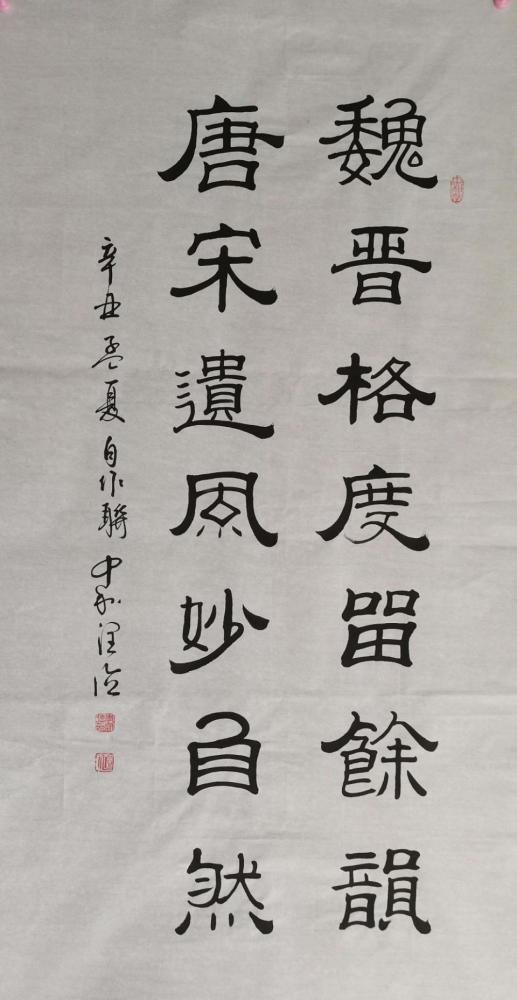 魏晋格度留餘韻
唐宋遺風妙自然
辛丑孟夏自作聯中和